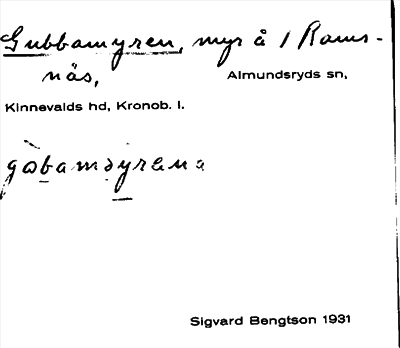 Gubbamyren, myr å 1 Rams-
näs,
Almundsryds sn,
Kinnevalds hd, Kronob. l.
Sigvard Bengtson 1931